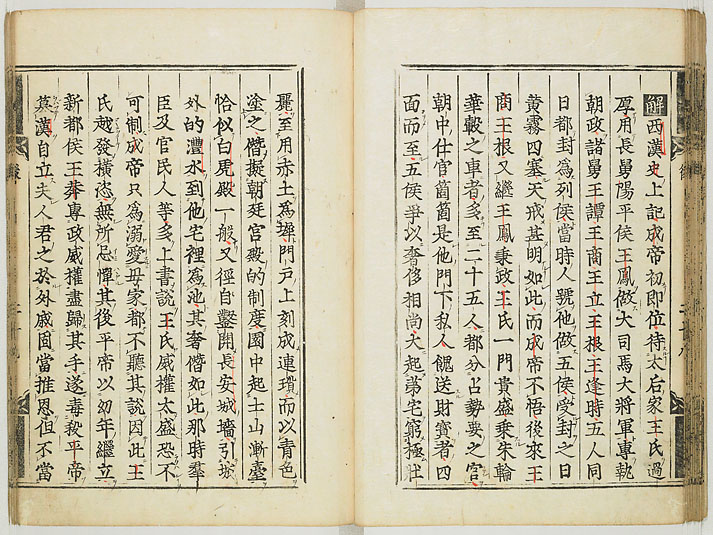 解西漢史上記成帝初即位待太后家王氏過
厚用長舅陽平侯王鳳做大司馬大將軍專執
朝政諸舅王譚王商王立王根王逢時五人同
日都封爲列侯當時人號他做五侯受封之日
黃霧四塞天戒甚明如此而成帝不悟後來王
商王根又繼王鳳秉政王氏一門貴盛乘朱輪
華轂之車者多至二十五人都分占勢要之官
朝中仕官箇箇是他門下私人餽送財寶者四
面而至五侯爭以奢侈相尚大起第宅窮極壯
麗至用赤土爲墀門戶上刻成連瑣而以青色
塗之僭擬朝廷宮殿的制度園中起土山漸臺
恰似白虎殿一般又徑自鑿開長安城墻引城
外的灃水到他宅裡爲池其奢僭如此那時羣
臣及官民人等多上書說王氏威權太盛恐不
可制成帝只爲溺愛母家都不聽其說因此王
氏越發橫恣無所忌憚其後平帝以幼年繼立
新都侯王莽專政威權盡歸其手遂毒殺平帝
簒漢自立夫人君之於外戚固當推恩但不當